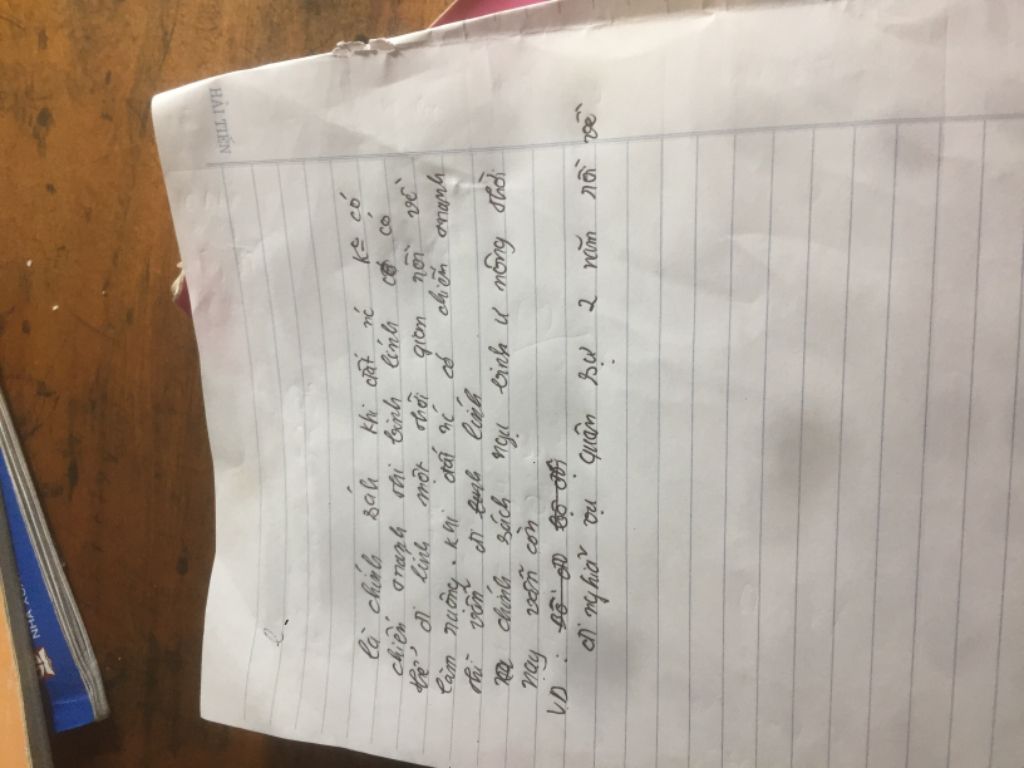 HẢI TIẾN
là chính sáh khi đất nc k= có
chiến tranh thi binh lính có
thể đi lính một thời gian rồi về
làm ruông. khi đất nc có chiến tranh
thì vẫn đi lính
chính sách ngụ binh ư nông thời
nay vẫn còn
VD:
đi nghĩa vụ quân sự 2 năm rồi về
NHÀ